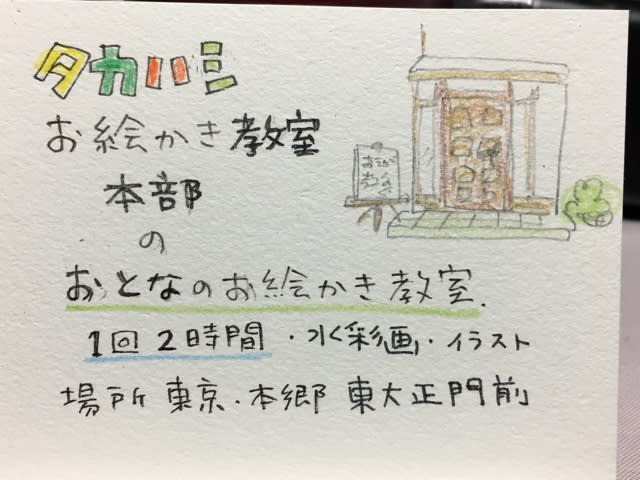 タカハシ
お絵かき教室
本部
の
おとなのお絵かき教室.
1回2時間・水彩画・イラスト
場所 東京・本郷 東大正門前